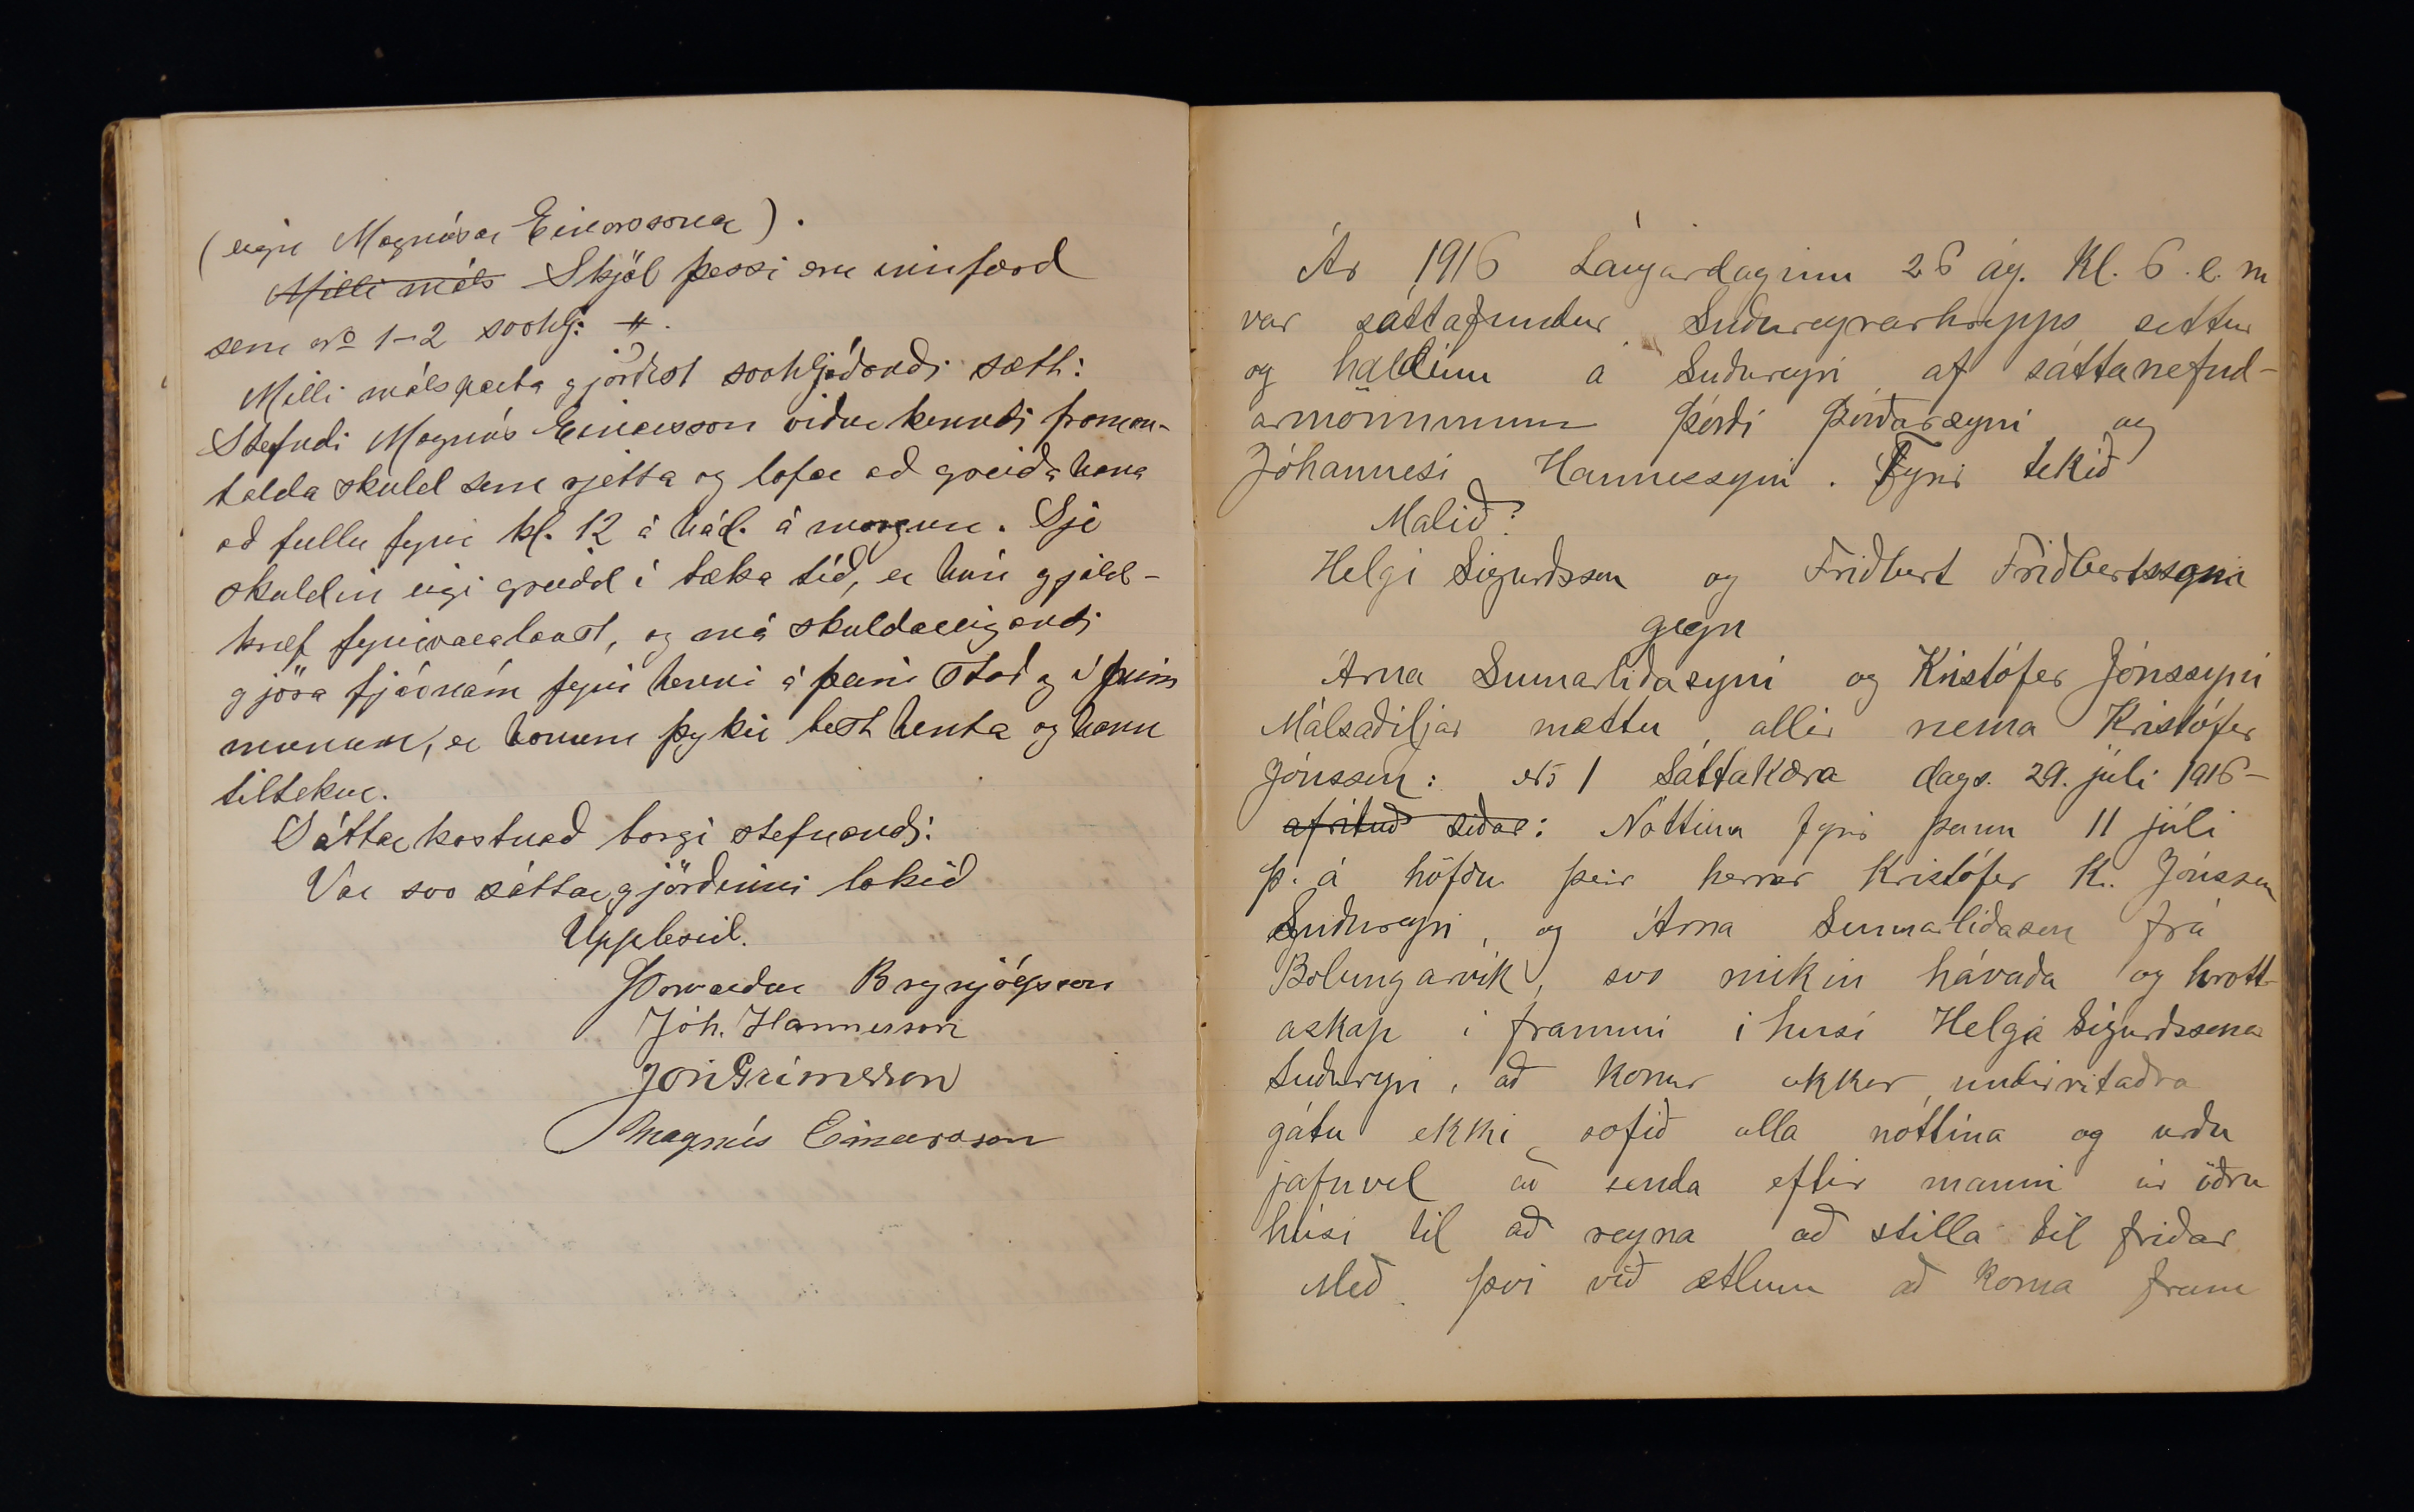 (eign Magnúsar Einarssonar).
Milli máls Skjöl þessi eru innfærd
sem No 1-2 svohlj: #.
Milli málsparta gjörðist svohljóðandi sætt:
Stefndi Magnús Einarsson viðurkenndi framan-
talda skuld sem rjetta og lofar að greiða hana
að fullu fyrir kl. 12 á hád. á morgun. Sje
skuldin eigi greidd í tæka tíð, er hún gjald-
kræf fyrirvaralaust, og má skuldareigandi
gjöra fjárnám fyrir henni á þeim stað og í þeim
munum, er honum þykir best henta og hann
tiltekur.
Sáttarkostnað borgi stefnandi:
Var svo sáttargjörðinni lokið
Upplesið.
Þorvarður Brynjólfsson
Jóh. Hannesson
Jón Grímsson
Magnús Einarsson
Ár 1916 Laugardaginn 26 ág. Kl. 6 e. m
var sáttafundur Suðureyrarhrepps settur
og haldinn á Suðureyri af sáttanefnd-
armönnunum Þórði Þórðarsyni og
Jóhannesi Hannessyni. Fyrir tekið
Málið:
Helgi Sigurðsson og Friðbert Friðbertssyni
gegn
Árna Sumarliðasyni og Kristófer Jónssyni
Málsaðiljar mættu allir nema Kristófer
Jónsson: No 1 Sáttakæra dags. 29. júli 1916-
afrituð síðar: Nóttina fyrir þann 11 júli
þ. á höfðu þeir herrar Kristófer K. Jónsson
Suðureyri, og Árna Sumarliðason frá
Bolungarvík, svo mikin hávaða og hrott-
askap i frammi i husi Helga Sigurðssonar
Suðureyri, að konur okkar undirritaðra
gátu ekki sofið alla nóttina og urðu
jafnvel að senda eftir manni úr öðru
húsi til að reyna að stilla til friðar
Með því við ætlum að koma fram